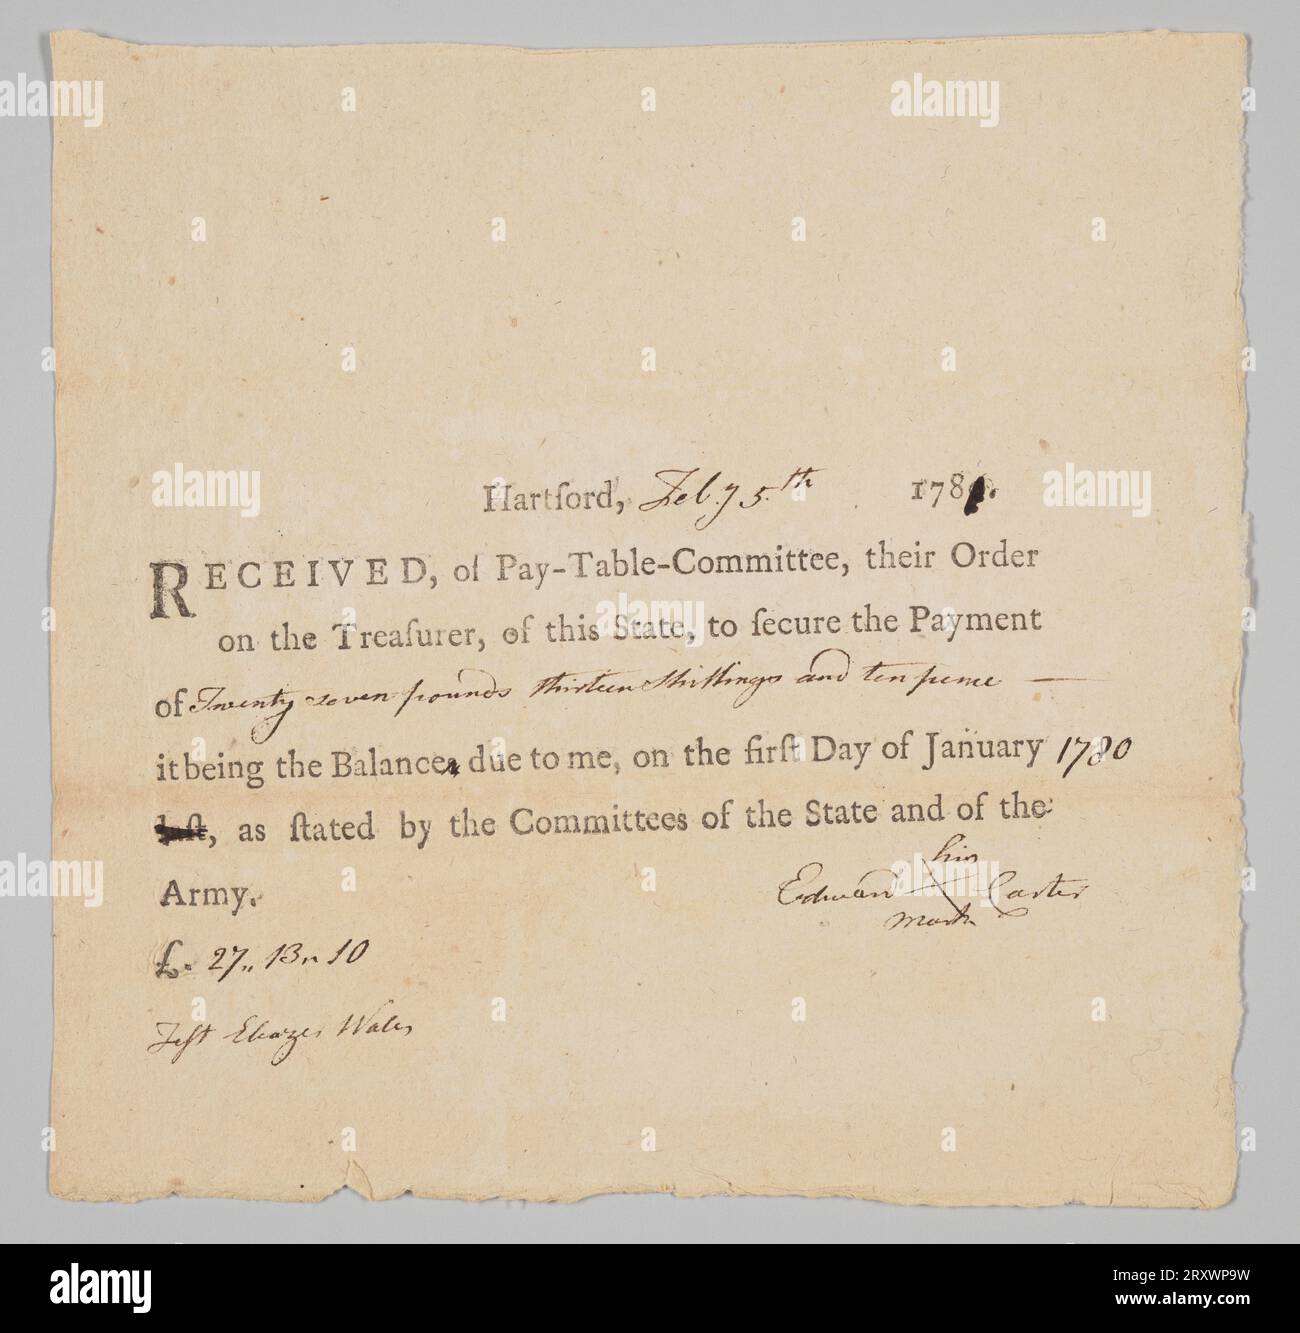 Hartford, Feb.y 5.th 1781.
RECEIVED, of Pay-Table-Committee, their Order
on the Treaſurer, of this State, to ſecure the Payment
of Twenty seven pounds thirteen shillings and ten pence —
it being the Balance, due to me, on the firſt Day of January 1780
laſt, as ſtated by the Committees of the State and of the
Army.
his
Edward X Carter
mark
£. 27,, 13,, 10
Teſt Eleazer Wales
alamy
Image ID: 2RXWP9W
www.alamy.com